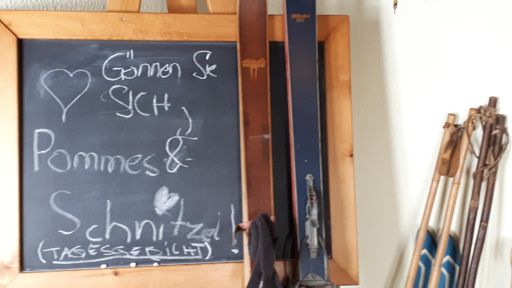 ♡ Gönnen Sie
SICH
Pommes &
Schnitzel!
(TAGESGERICHT)